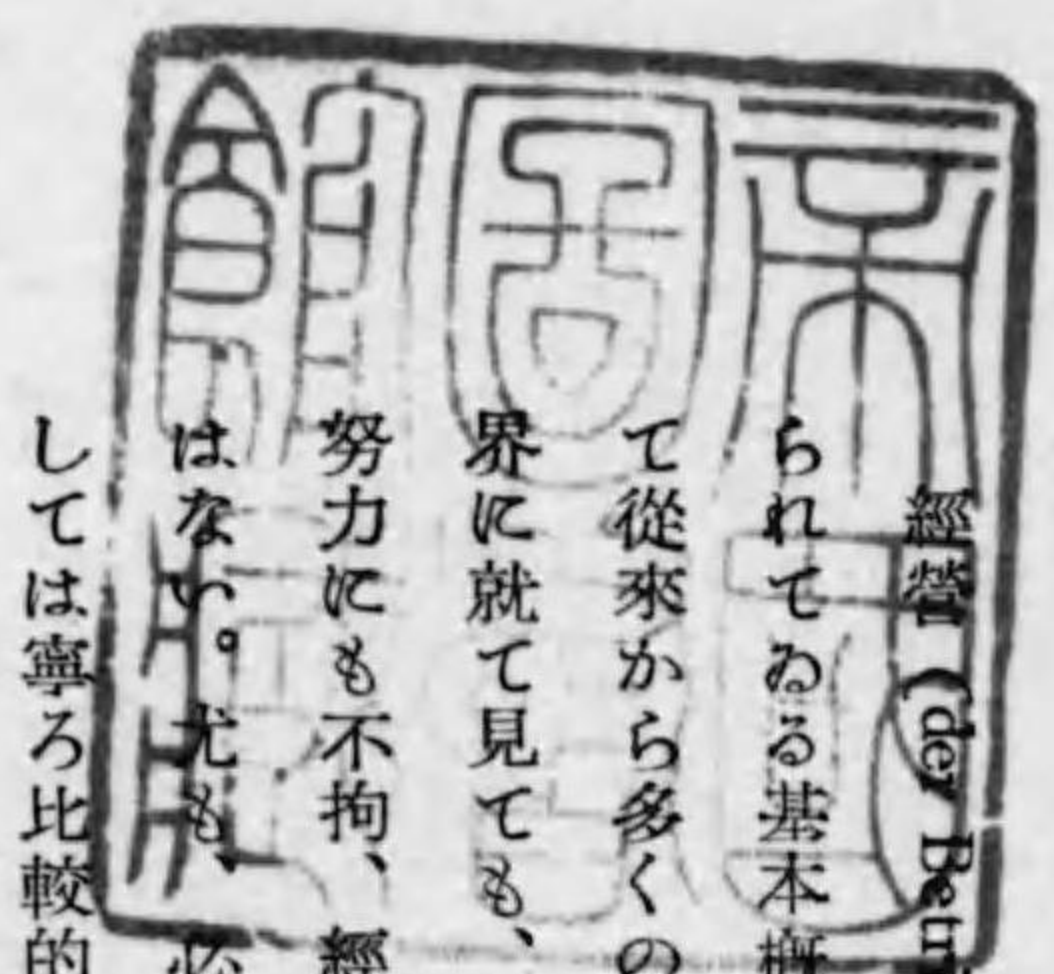 經營 (der Betr
られてゐる基本概
て從來から多くの
界に就て見ても、
努力にも不拘、經
はない。尤も、必
しては寧ろ比較的